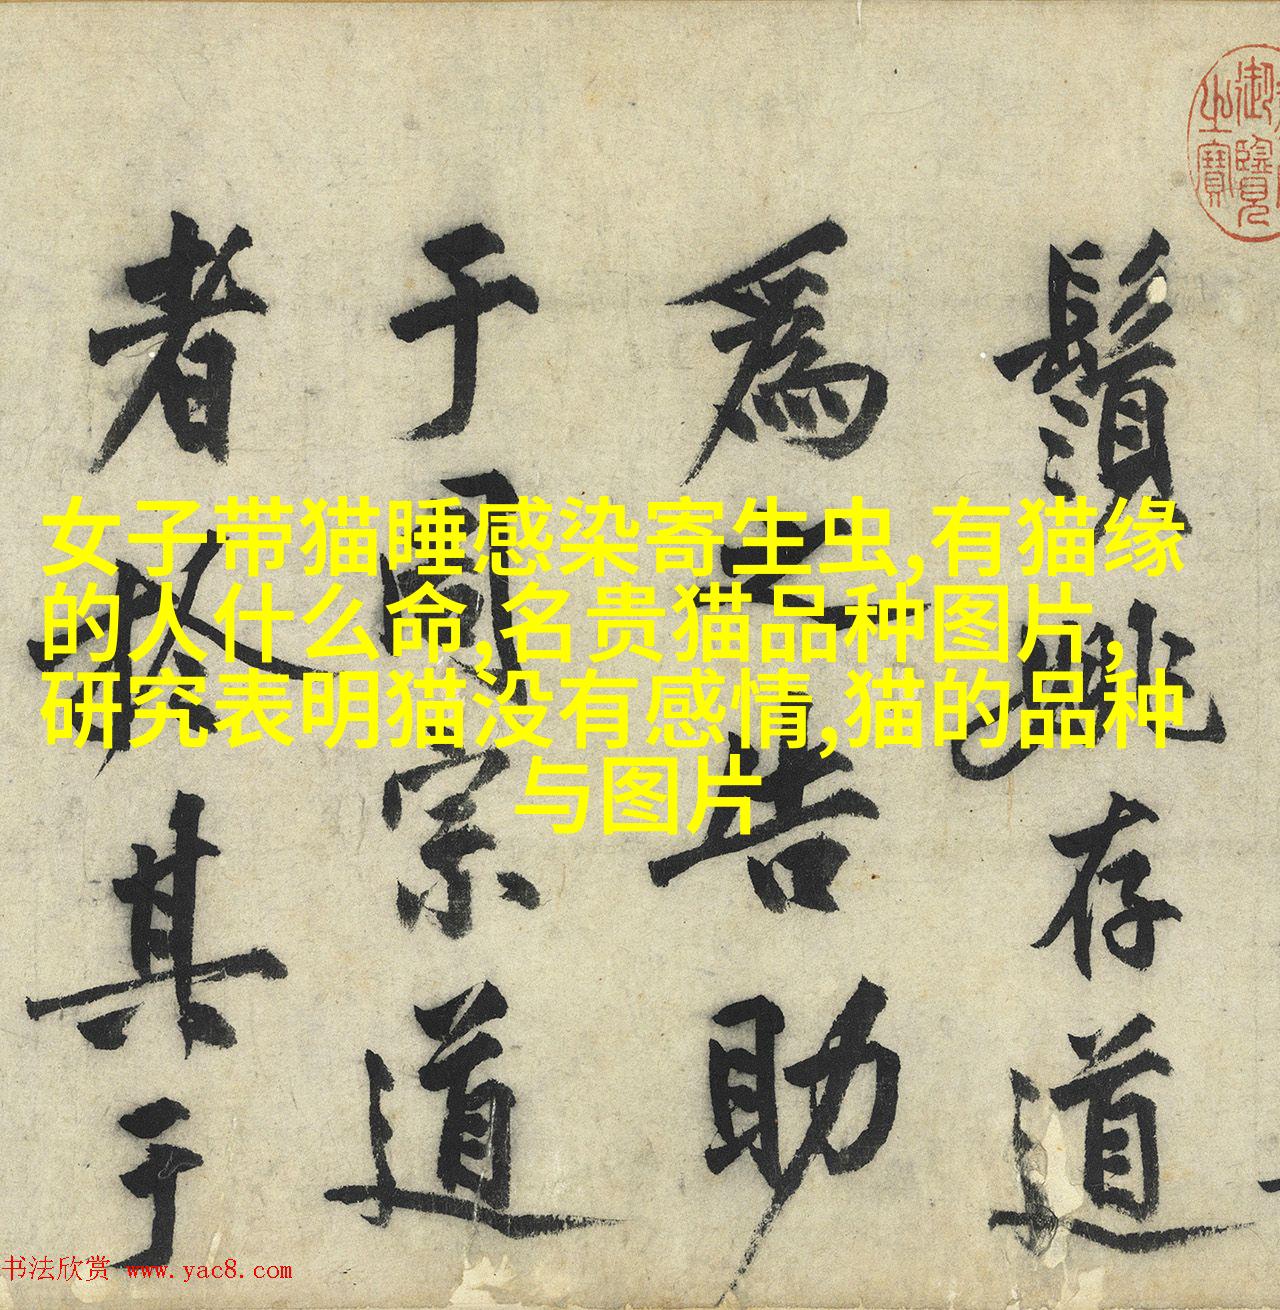 鬚姚存道
為之告助
于周宗道
者於其于
御覽
之寶
女子带猫睡感染寄生虫,有猫缘
的人什么命,名贵猫品种图片,
研究表明猫没有感情,猫的品种
与图片
书法欣赏 www.yac8.com